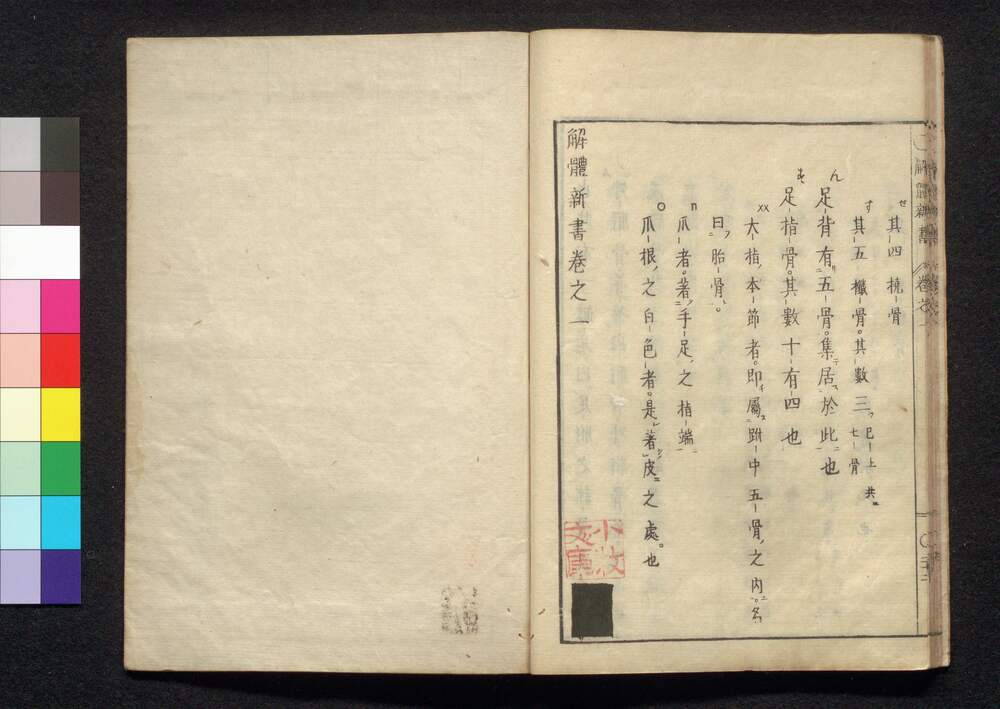 せ 其四橈骨
す 其五櫼骨。其數三 已上共七骨
ん 足背有五骨。集居於此也
足指骨。其數十有四也
xx 大指本節者。即屬跗中五骨之内。名
曰胎骨。
n 爪者。著手足之指端
o 爪根之白色者。是著皮之處。也
解體新書卷之一
解體新書
卷之一
小汝
文庫